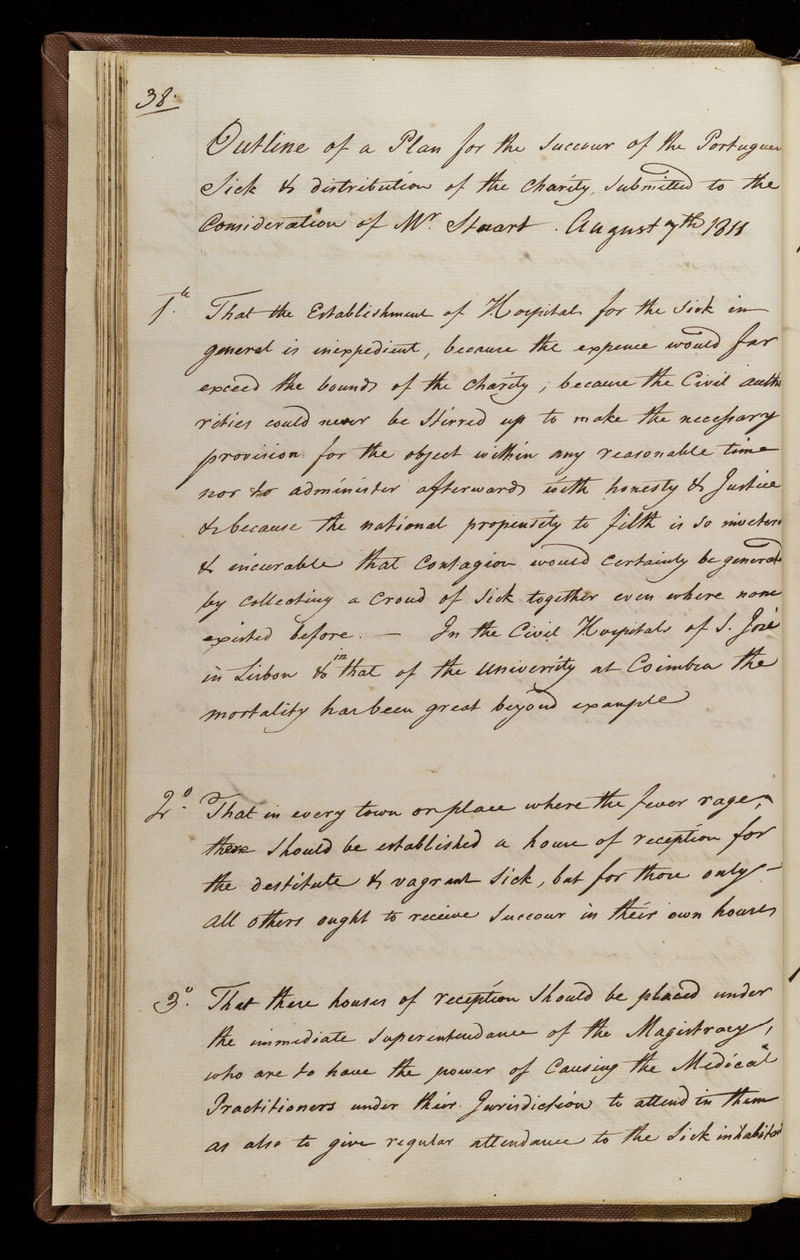 38.
Outline of a Plan for the Succour of the Portuguese
Sick & distribution of the Charity, submitted to the
Consideration of Mr. Stuart. August 7th 1811
1.
That the Establishment of Hospitals for the Sick in
general is inexpedient, because the expence would far
exceed the bounds of the charity; because the Civil autho
rities could never be stirred up to make the necessary
provision for the object within any reasonable time
nor to administer afterwards with honesty & Justice
& because the national propensity to filth is so
& incurable that Contagion would certainly be generated
by collecting a croud of Sick together even where none
existed before. — In the Civil Hospitals of S. José
in Lisbon & in that of the University at Coimbra the
mortality has been great beyond example
2o. That in every town or place where the fever rages,
there should be established a house of reception for
the destitute & vagrant Sick, but for those only —
all others ought to receive Succour in their own houses
3o. That these houses of reception should be placed under
the immediate Superintendance of the Magistracy,
who are to have the power of Causing the Medical
Practitioners under their Jurisdiction to attend in them
as also to give regular attendance to the Sick